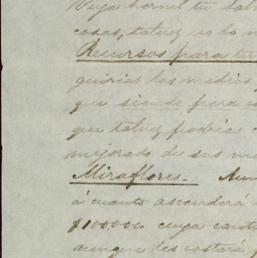 cosas, talvez no lo
Recursos para tu
quirias los medios
que siendo para
que talvez podrias
mejorado de sus
Miraflores. Aun
á cuanto ascenderá
$100.000 cuya canti
aunque les costará